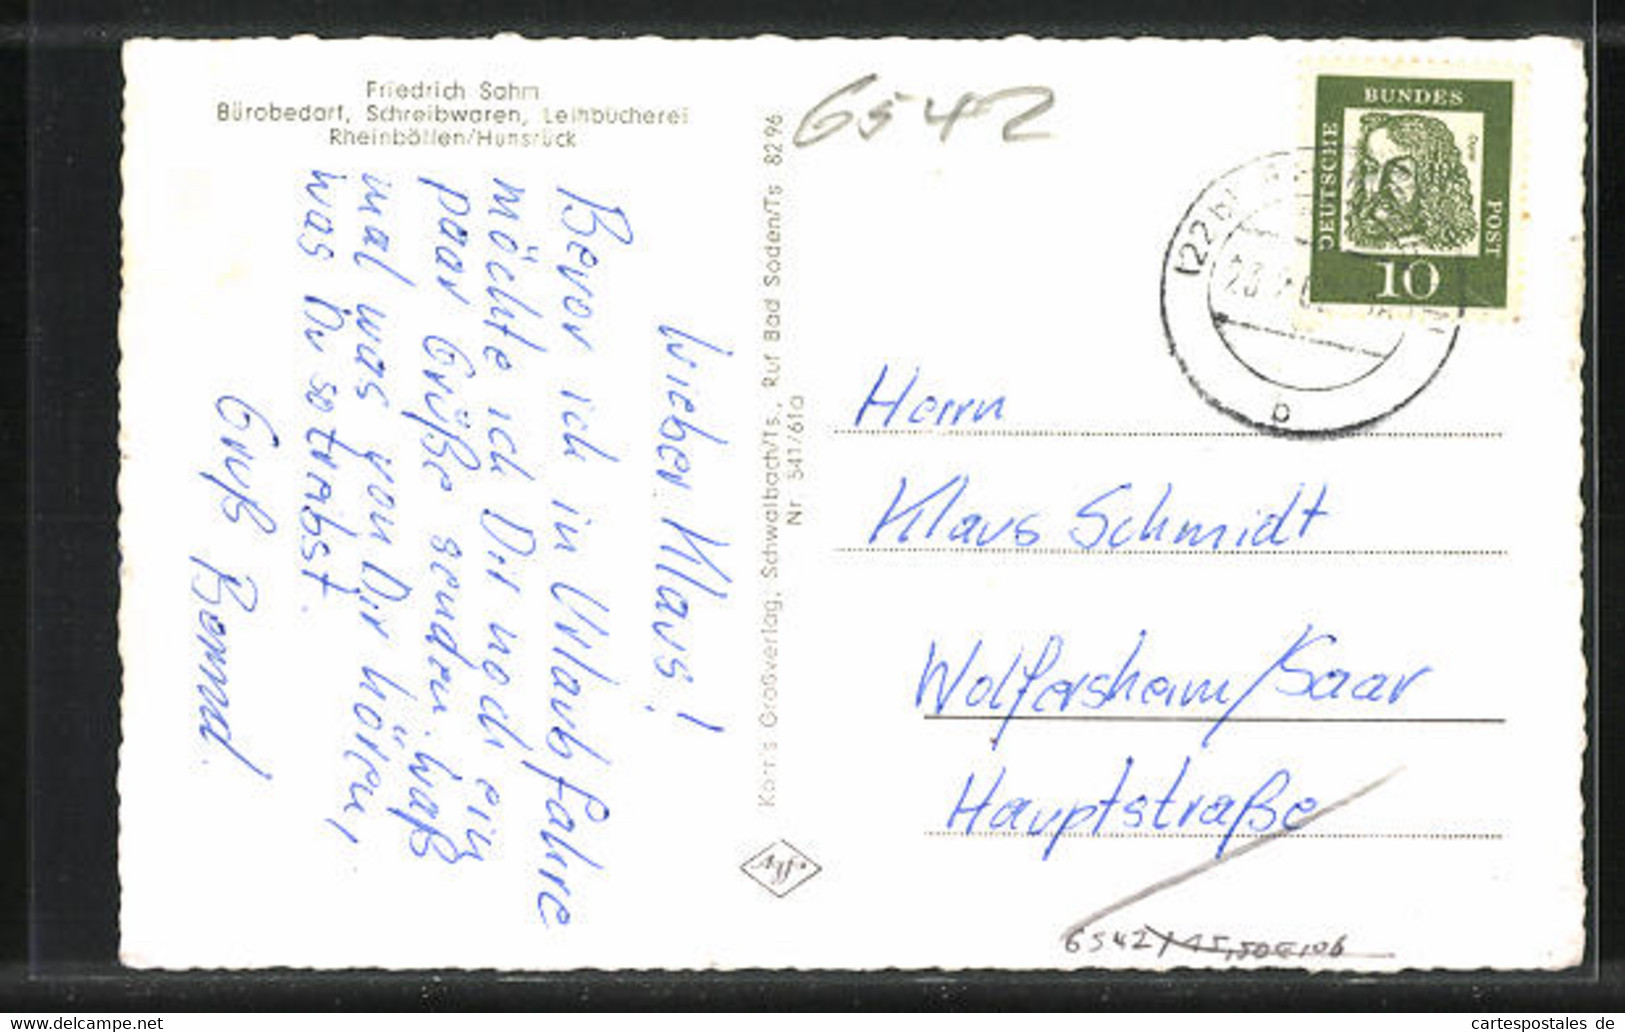 Friedrich Sahm
Bürobedarf, Schreibwaren, Leihbücherei
Rheinböllen/Hunsrück
Lieber Klaus!
Bevor ich in Urlaub fahre
möchte ich Dir noch ein
paar Grüße senden. Laß
mal was von Dir hören,
was Du so treibst.
Gruß Bernd.
Korr's Großverlag, Schwalbach/Ts., Ruf Bad Soden/Ts 82 96
Nr. 541/61a
Agfa
6542
DEUTSCHE
BUNDES
POST
Dürer
10
(22b)
b
Herrn
Klaus Schmidt
Wolfersheim/Saar
Hauptstraße
6542
cartespostales de